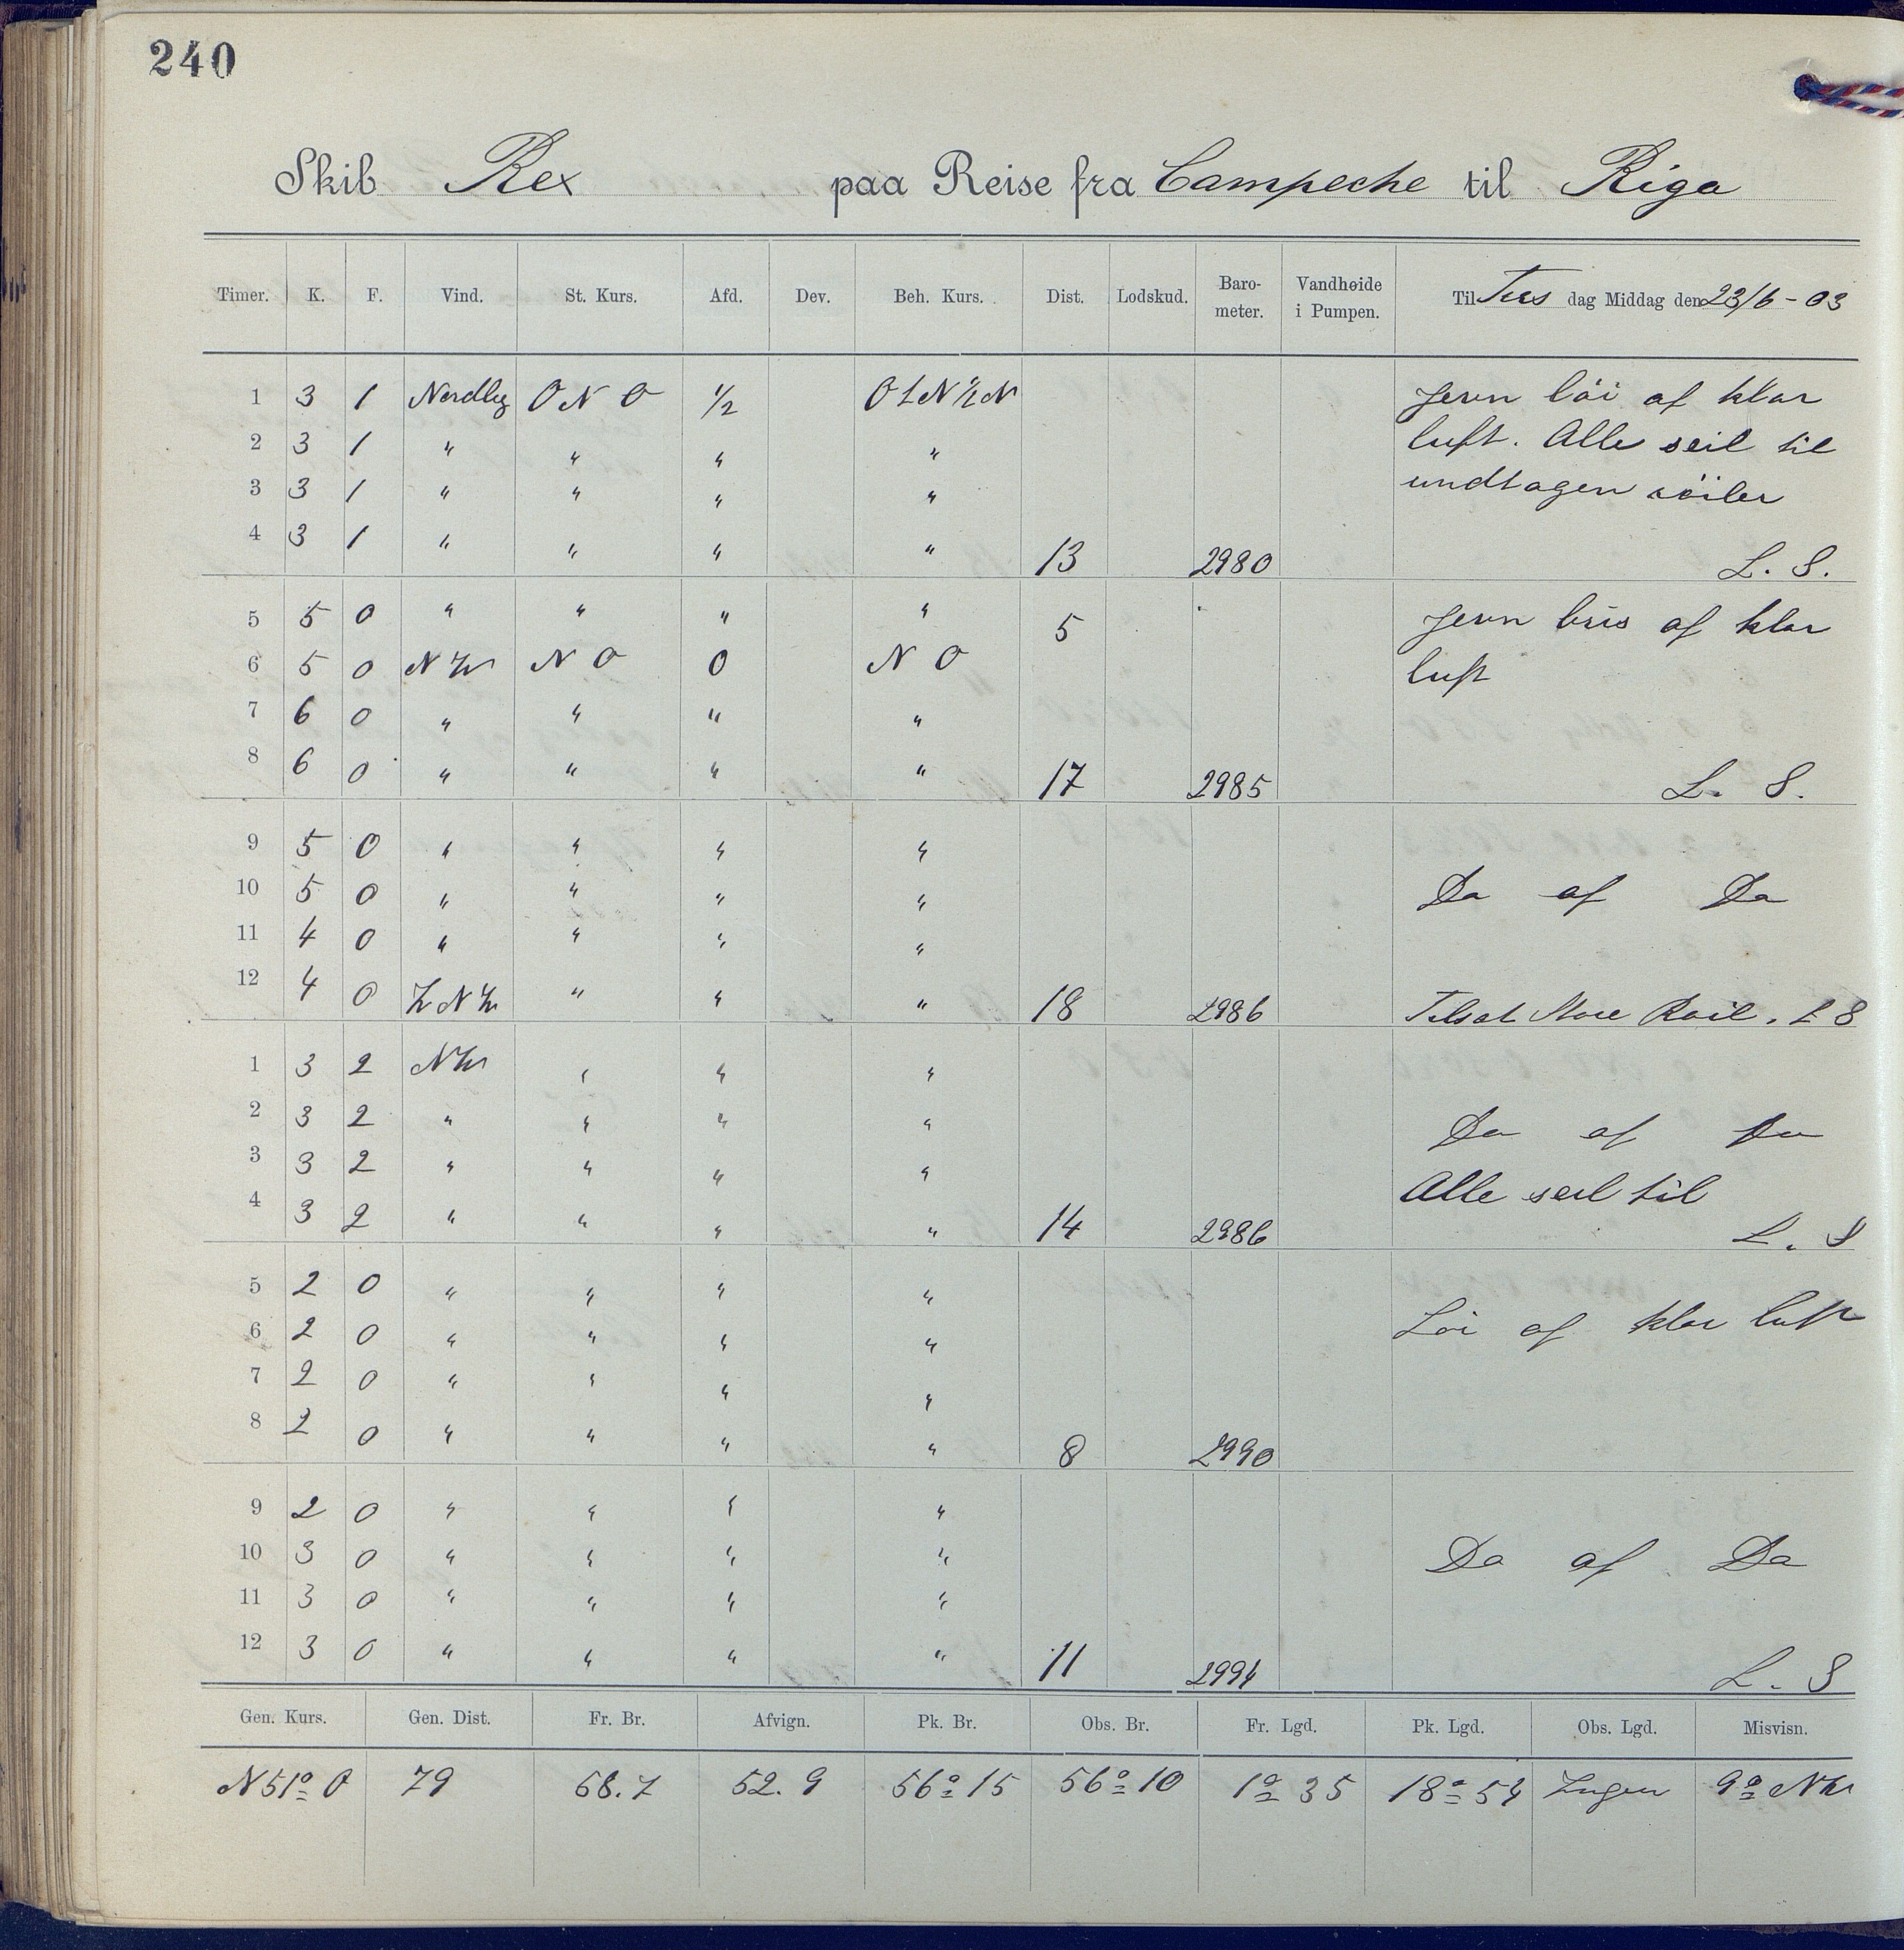 240
Skib Rex paa Reise fra Campeche til Riga
Timer. K. F. Vind. St. Kurs. Afd. Dev. Beh. Kurs. Dist. Lodskud. Barometer. Vandhøide i Pumpen. Til Tirs dag Middag den 23/6-03
1 3 1 Nordleg O N O 1/2 O t N 1/2 N Jevn löi af klar
2 3 1 " " " " luft. Alle seil til
3 3 1 " " " " undtagen röiler
4 3 1 " " " " 13 2980 L. S.
5 5 0 " " " " 5 Jevn bris af klar
6 5 0 N W N O 0 N O luft
7 6 0 " " " "
8 6 0 " " " " 17 2985 L. S.
9 5 0 " " " "
10 5 0 " " " " Do af Do
11 4 0 " " " "
12 4 0 W N W " " " 18 2986 Tilsat Store Röil. L S
1 3 2 N W " " "
2 3 2 " " " " Do af Do
3 3 2 " " " " Alle seil til
4 3 2 " " " " 14 2986 L. S
5 2 0 " " " "
6 2 0 " " " " Löi af klar luft
7 2 0 " " " "
8 2 0 " " " " 8 2990
9 2 0 " " " "
10 3 0 " " " " Do af Do
11 3 0 " " " "
12 3 0 " " " " 11 2994 L. S
Gen. Kurs. Gen. Dist. Fr. Br. Afvign. Pk. Br. Obs. Br. Fr. Lgd. Pk. Lgd. Obs. Lgd. Misvisn.
N 51° O 79 58.7 52.9 56° 15 56° 10 1° 35 18° 54 Ingen 9° N W